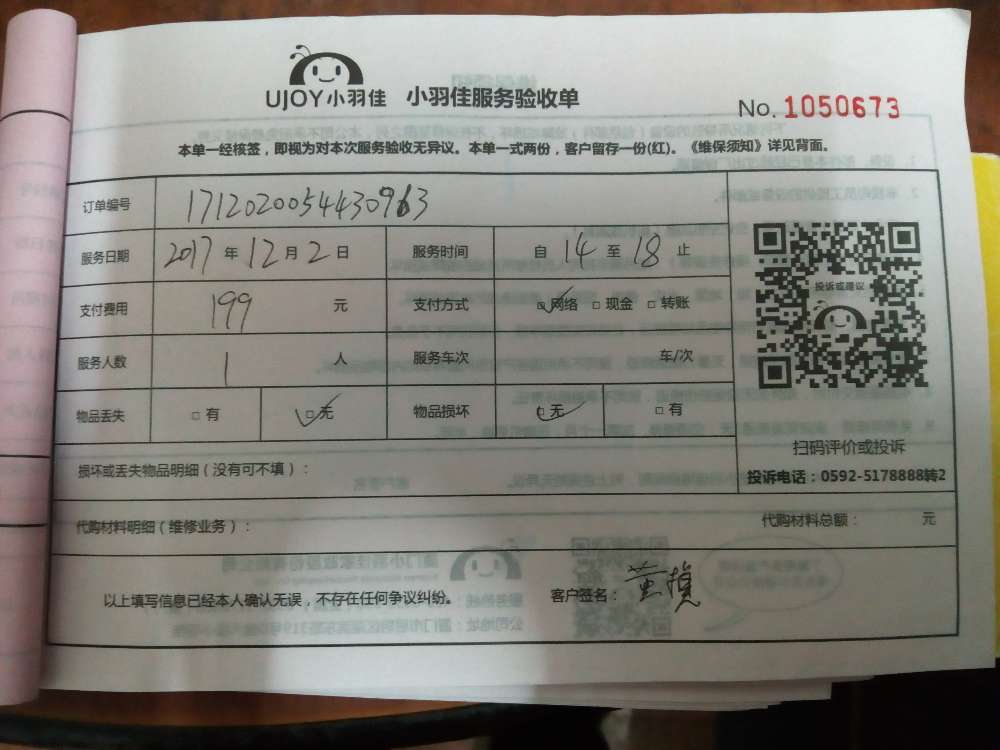 UJOY小羽佳 小羽佳服务验收单
No. 1050673
本单一经核签，即视为对本次服务验收无异议。本单一式两份，客户留存一份(红)。《维保须知》详见背面。
订单编号 1712020054430963
服务日期 2017 年 12 月 2 日 服务时间 自 14 至 18 止
投诉或建议
支付费用 199 元 支付方式 □网络 □现金 □转账
服务人数 1 人 服务车次 车/次
物品丢失 □有 □无 物品损坏 □无 □有
扫码评价或投诉
损坏或丢失物品明细（没有可不填）：
投诉电话：0592-5178888转2
代购材料明细（维修业务）： 代购材料总额： 元
以上填写信息已经本人确认无误，不存在任何争议纠纷。 客户签名：